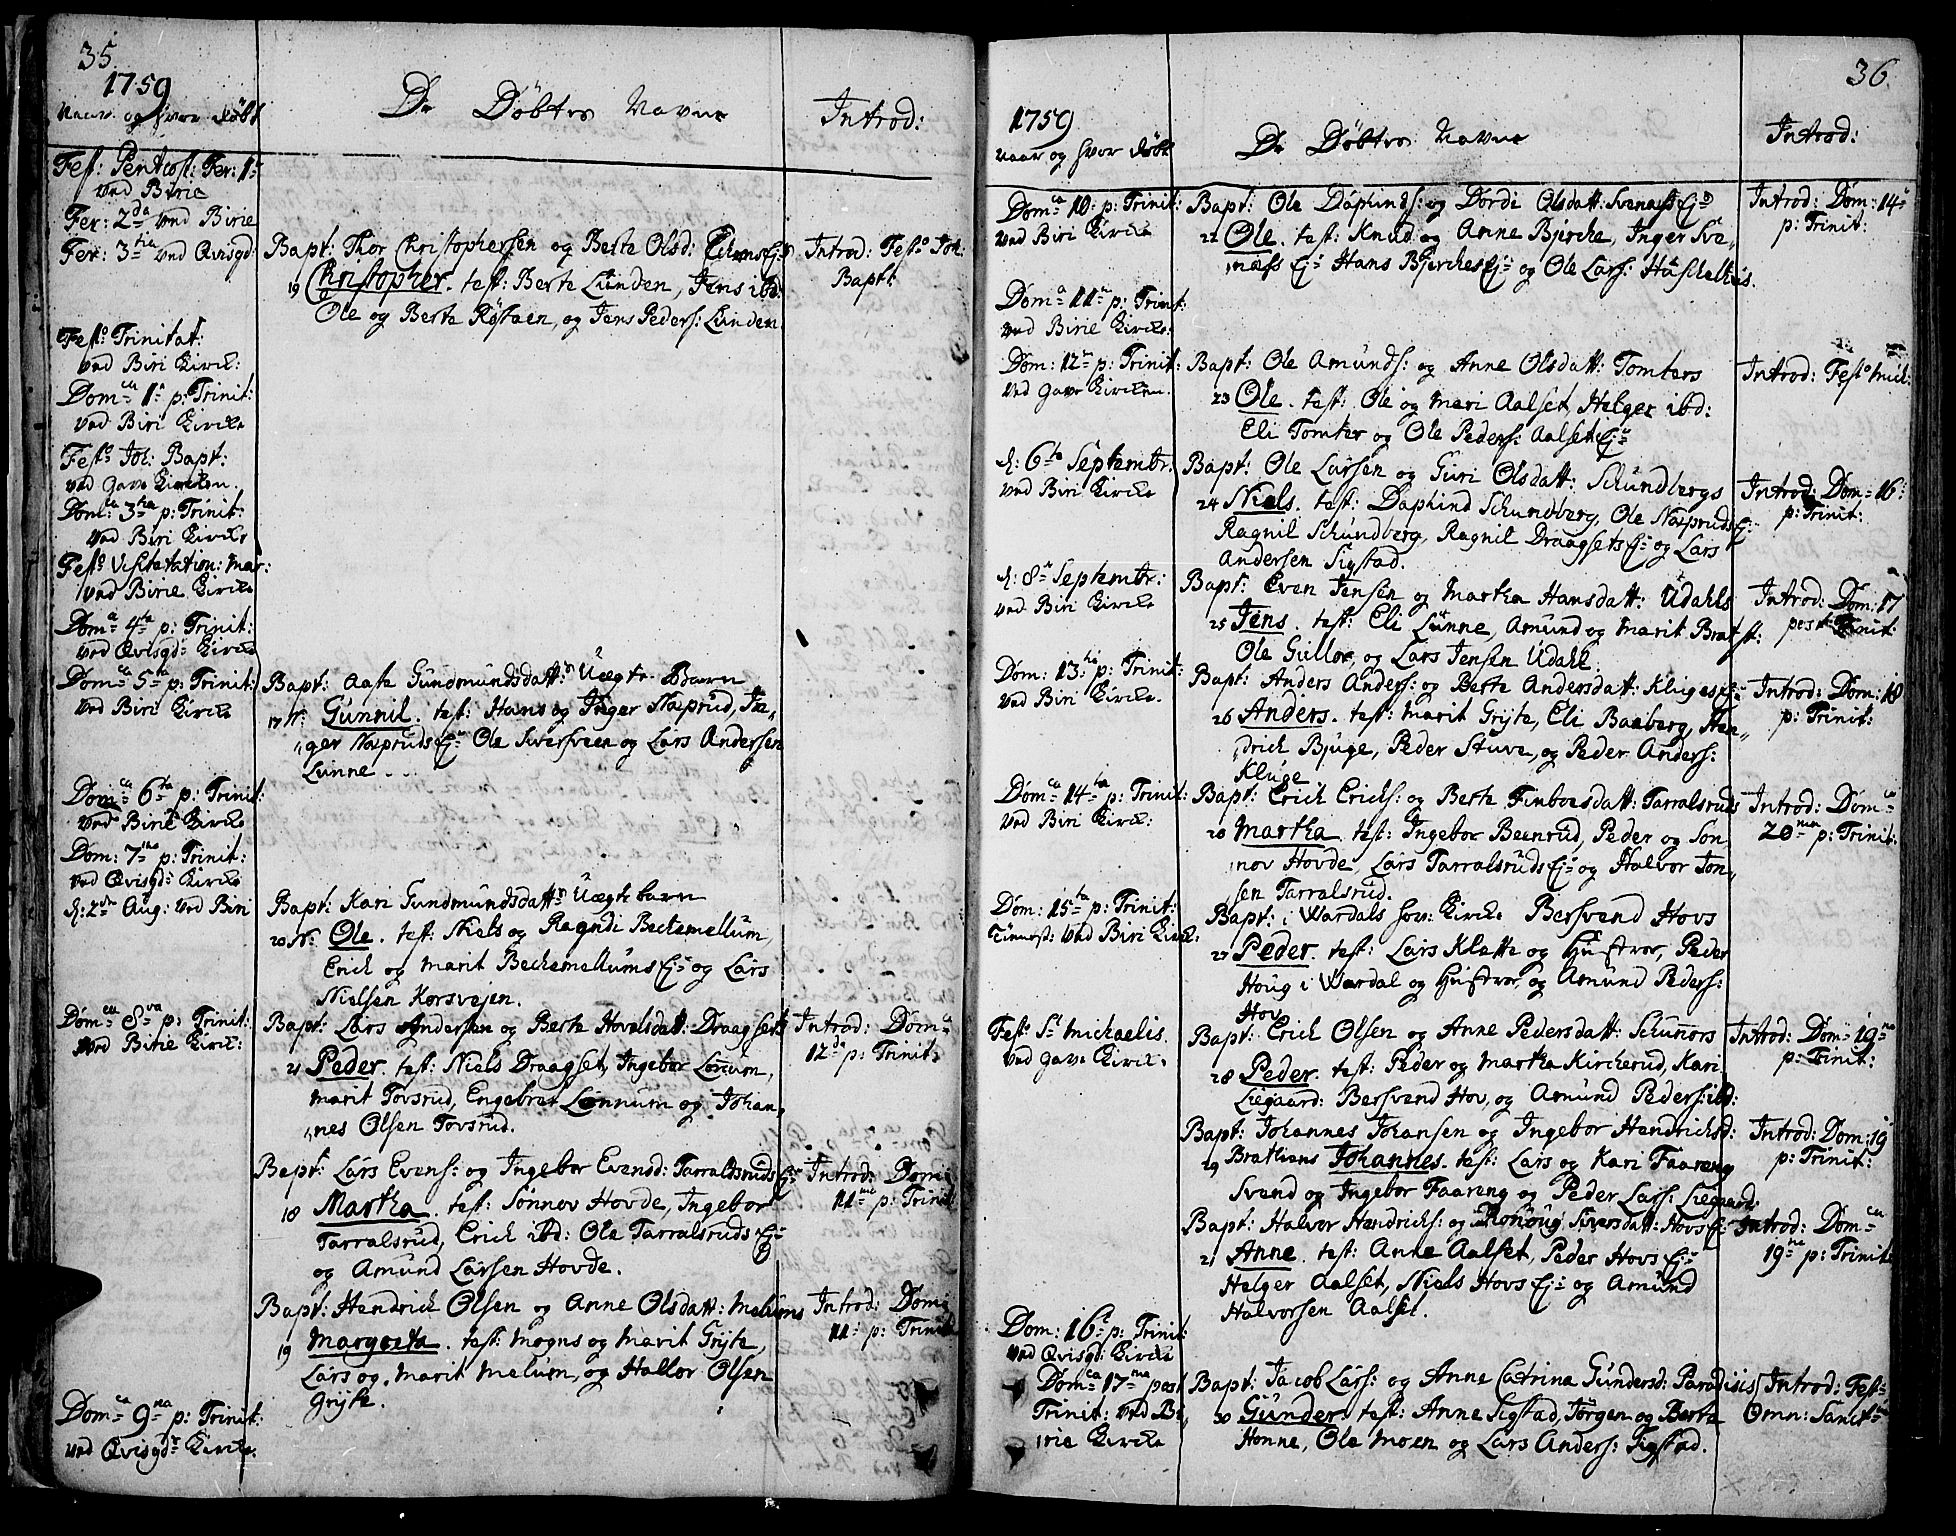 35.
1759
Naar og hvor døbt
De Döbtes Navne
Introd:
Fest: Pentcost: Fer: 1.
ved Birie
Fer: 2da ved Birie
Fer: 3tia ved Qvisgd:
Bapt: Thor Christophersen og Berte Olsd:
19 Christopher. test: Berte Lunden, Jens ibd:
Ole og Berte Röstøen, og Jens Peders: Lunden.
Introd: Festo Joh:
Bapt:
Festo Trinitat:
ved Biri Kirck:
Domca 1a p: Trinit:
ved Biri Kircke
Festo Joh: Bapt:
ved Gave Kircken.
Domca 3tia p: Trinit:
ved Biri Kircke
Festo Visitatation: Mar:
ved Birie Kircke
Domca 4ta p: Trinit:
ved Qvisgd: Kircke
Domca 5ta p: Trinit:
ved Biri Kircke
Bapt: Aaste Gundmundsdatt: Uægte Barn
17 N: Gunnil. test: Hans og Inger Næprud, In-
ger Næpruds Ej: Ole Sversveen og Lars Andersen
Lunne...
Domca 6ta p: Trinit:
ved Birie Kircke
Dom: 7ma p: Trinit:
ved Qvisgd: Kircke
d: 2den Aug: ved Biri
Bapt: Kari Gundmundsdatt: Uægte barn
20 N: Ole. test: Niels og Ragndi Beckemellum,
Erich og Marit Beckemellums Ej: og Lars
Nielsen Korsvejen.
Domca 8va p: Trinit:
ved Birie Kirck:
Bapt: Lars Andersen og Berte Hovelsdatt: Draagset
21 Peder. test: Niels Draagset, Ingebor Lønnum,
Marit Tovsrud, Engebret Lønnum og Johan-
nes Olsen Tovsrud.
Introd: Domca
12da p: Trinit:
Bapt: Lars Evens: og Ingebor Evensd: Tarraldsruds Ej:
18 Martha. test: Sønnov Hovde, Ingebor
Tarralsrud, Erich ibd: Ole Tarralsruds Ej:
og Amund Larsen Hovde.
Introd: Dom:
11me p: Trinit:
Bapt: Hendrich Olsen og Anne Olsdatt: Melums
19 Margreta. test: Mogns og Marit Gryte,
Lars og Marit Melum, og Hallor Olsen
Gryte.
Introd: Dom:
11: p: Trinit:
Domca 9na p: Trinit:
ved Qvisgds Kircke.
36.
1759
Naar og hvor døbt
De Döbtes Navne
Introd:
Domca 10: p: Trinit:
ved Biri Kircke
Bapt: Ole Daphinds: og Dordi Olsdatt: Svenæss Ej:
22 Ole. test: Knud og Anne Bjerche, Inger Sve-
næss Ej: Hans Bjerches Ej: og Ole Lars: Huschelhus.
Introd: Dom: 14a
p: Trinit:
Domca 11te p: Trinit:
ved Birie Kircke:
Dom: 12te p: Trinit:
ved Gave Kircken.
Bapt: Ole Amunds: og Anne Olsdatt: Tomters
23 Ole. test: Ole og Mari Aalset, Helger ibd:
Eli Tomter og Ole Peders: Aalset Ej:
Introd: Festo Mich:
d: 6te Septembr:
ved Biri Kircke
Bapt: Ole Larsen og Guri Olsdatt: Schundbergs
24 Niels. test: Daphind Schundberg, Ole Næpruds Ej:
Ragnil Schundberg, Ragnil Draagsets Ej: og Lars
Andersen Sigstad.
Introd: Dom: 16
p: Trinit:
d: 8de Septembr:
ved Biri Kircke
Bapt: Even Jensen og Martha Hansdatt: Udahls
25 Jens. test: Eli Lunne, Amund og Marit Bratst:
Ole Gullor, og Lars Jensen Udahl.
Introd: Dom: 17
post Trinit:
Dom: 13tia p: Trinit:
ved Biri Kircke.
Bapt: Anders Anders: og Berte Andersdatt:
26 Anders. test: Marit Gryte, Eli Baaberg, Hen-
drich Bjuge, Peder Stuve, og Peder Anders:
Kluge
Introd: Dom: 18
p: Trinit:
Domca 14ta p: Trinit:
ved Biri Kirck:
Bapt: Erich Erichs: og Berte Finboesdatt: Tarralsruds
20 Martha. test: Ingebor Beenrud, Peder og Søn-
nov Hovde, Lars Tarralsruds Ej: og Halvor Jon-
sen Tarralsrud.
Introd: Domca
20ma p: Trinit:
Dom: 15ta p: Trinit:
ved Biri Kirck:
Bapt: i Wardals hov: Kircke Bersvend Hovs
27 Peder. test: Lars Klatte og Hustror, Peder
Houg i Wardal og Hustror og Amund Peders:
Hov
Festo St Michaelis.
ved Gave Kirck:
Bapt: Erich Olsen og Anne Pedersdatt: Schunors
28 Peder. test: Peder og Martha Kircherud, Kari
Liegaard: Bersvend Hov, og Amund Peders: ibd:
Introd: Dom: 19na
p: Trinit:
Bapt: Johannes Johansen og Ingebor Hendrichsd:
29 Brathens Johannes. test: Lars og Kari Faareng
Svend og Ingebor Faareng og Peder Lars: Liegaard:
Introd: Dom: 19
p: Trinit:
Bapt: Halvor Hendrichs: og Ronoug Siversdatt: Hovs Ej:
21 Anne. test: Anne Aalset, Peder Hovs Ej:
Helger Aalset, Niels Hovs Ej: og Amund
Halvorsen Aalset.
Introd: Domca
19na p: Trinit:
Dom: 16a p: Trinit:
ved Qvisgd: Kircke
Domca 17ma post
Trinit: ved Bi-
rie Kircke
Bapt: Jacob Lars: og Anne Catrina Gundersd: Paradiis
30 Gunder. test: Anne Sigstad, Jørgen og Berte
Honne, Ole Moen og Lars Anders: Sigstad.
Introd: Fest:
Omn: Sanct: